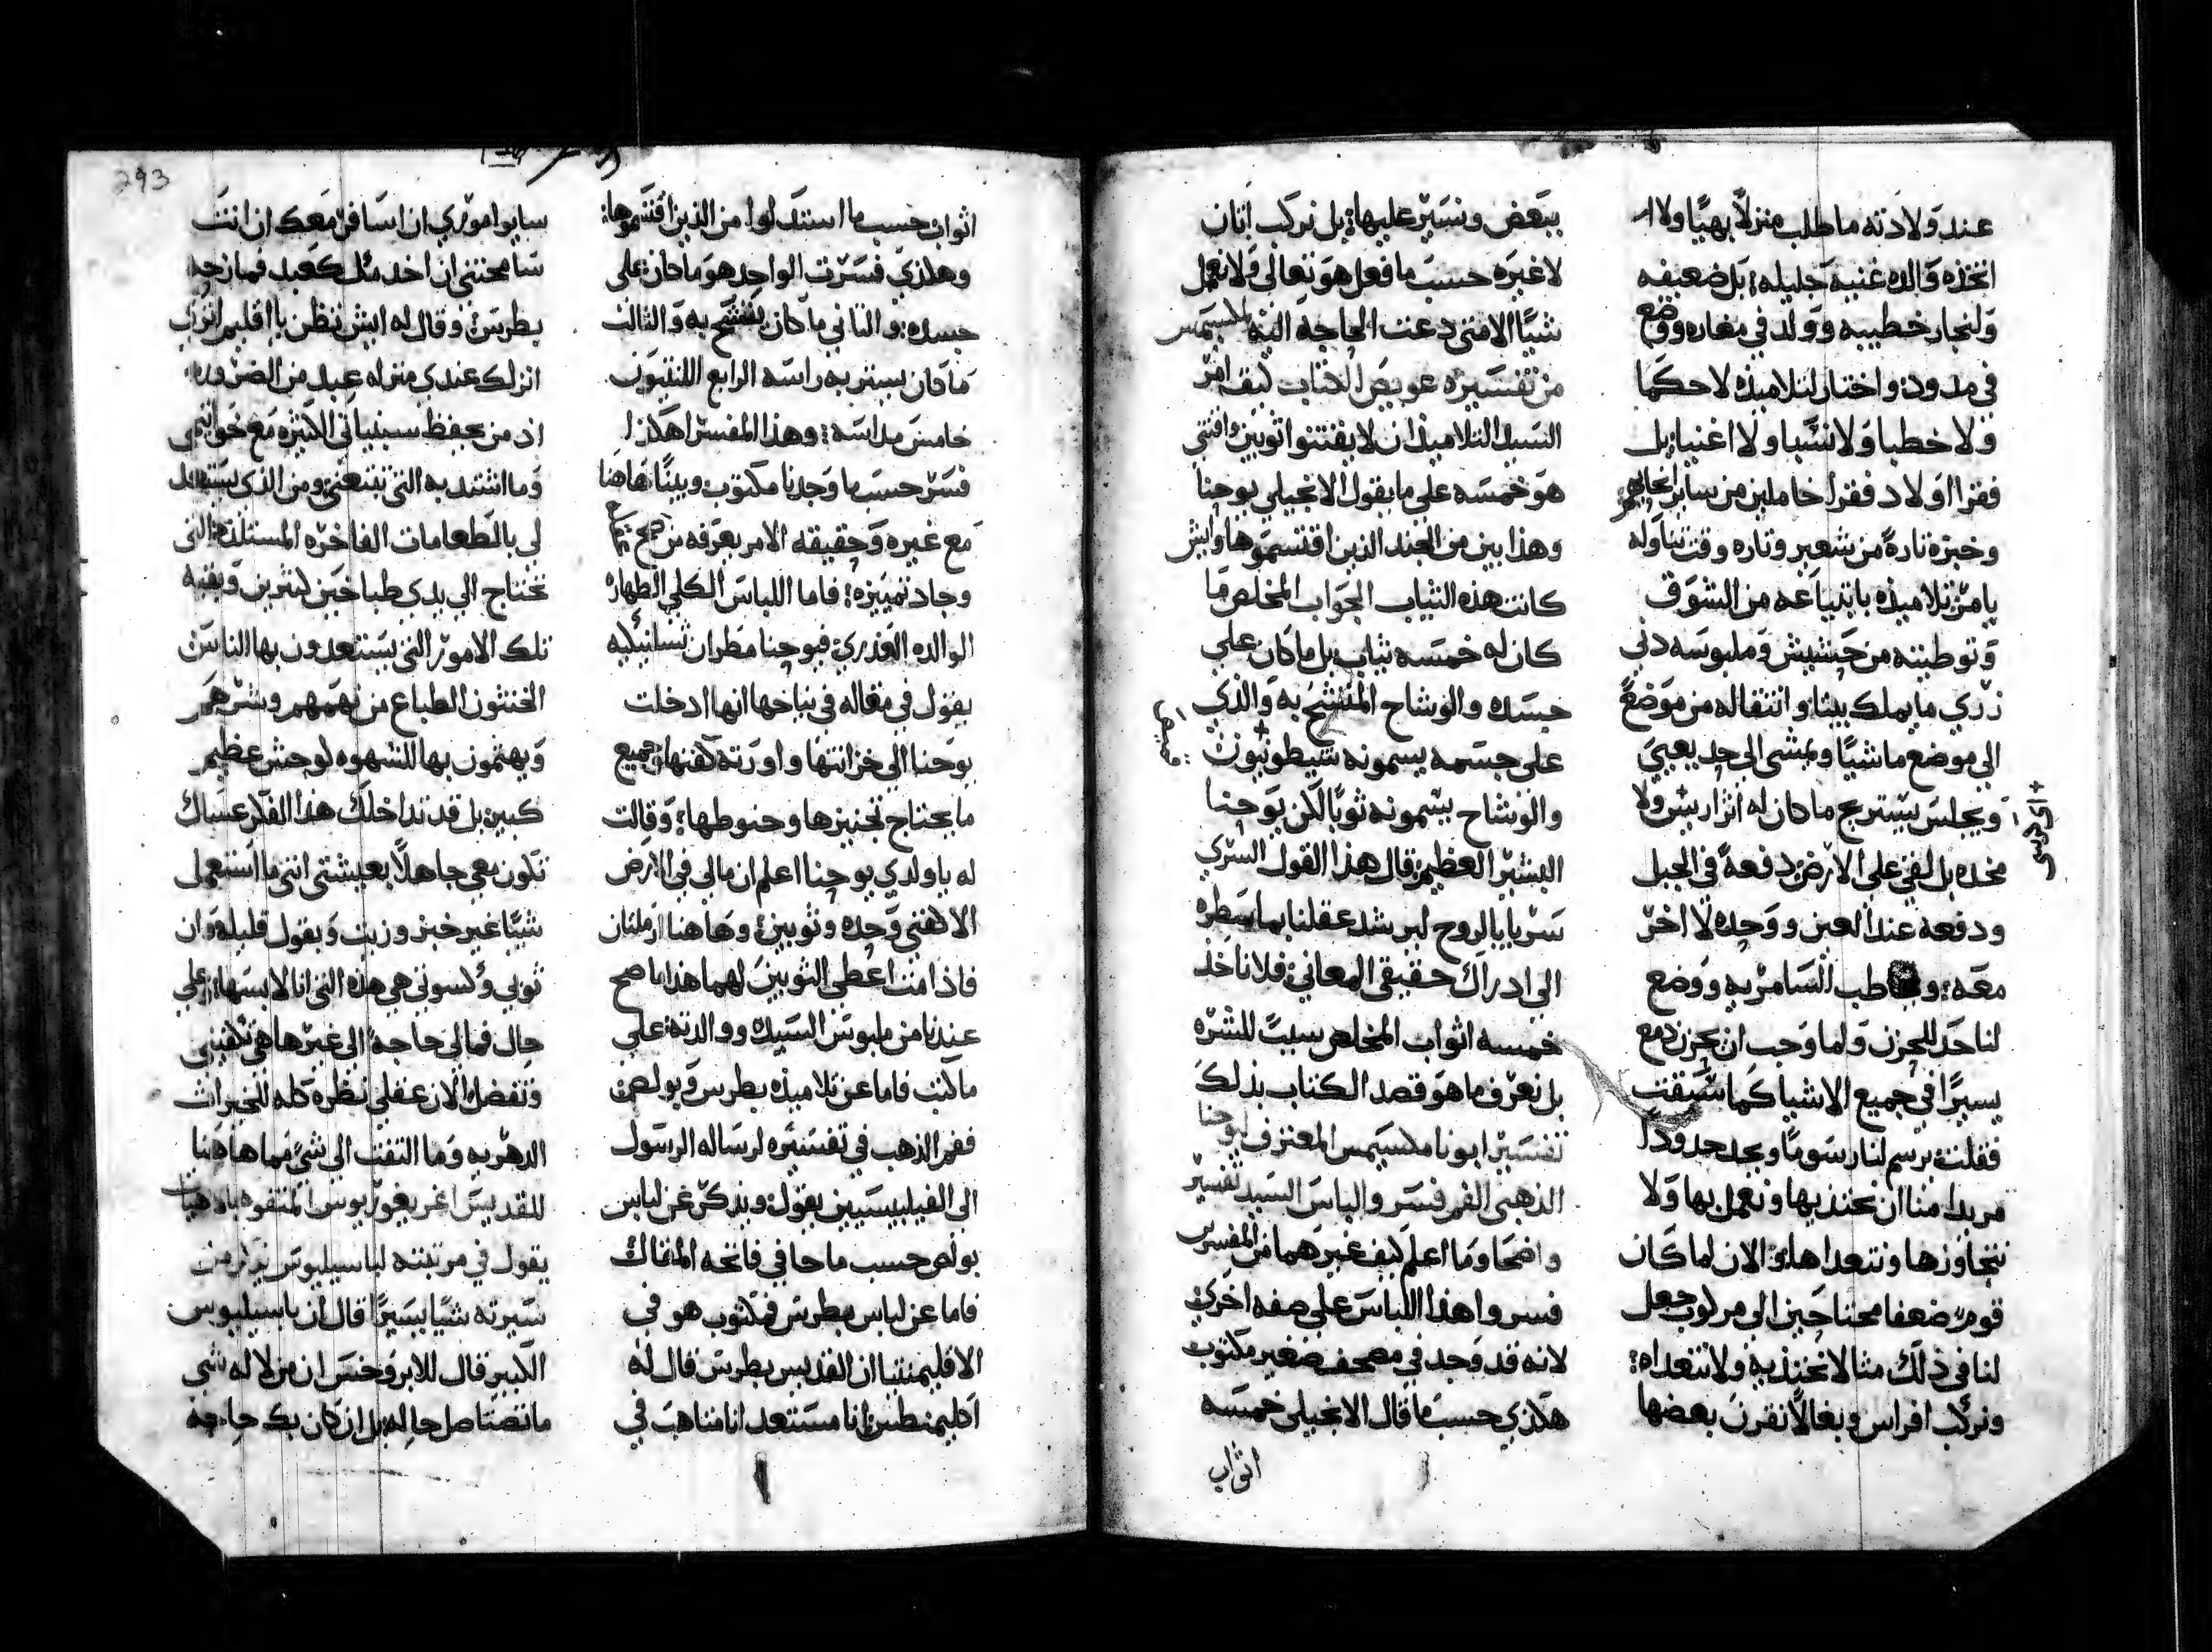 عند ولادته ما طلب منزلاً بهيًا ولا ا
اتخذه والده غنيه جليله؛ بل ضعيفه
ولنجار خطيبه وولد في مغاره ووضع
في مدود؛ واختار لتلاميذه لا حكما
ولا خطبا ولا نسبا ولا اغنيا؛ بل
فقرا اولاد فقرا خاملين من ساير
وخبزه تارةً من شعير وتاره وقت تناوله
يامر تلاميذه بابتياعه من السوق
وتوطيته من حشيش وملبوسه دني
زري ما يملك بيتا وانتقاله من موضعً
الي موضع ماشيًا ويمشي الي حد يعيي
ويجلس يستريح ما كان له ولا
مخده بل لقي علي الارض دفعةً في الجبل
ودفعه عند العين ووحده لا اخر
معه؛ و طب السامريه ووضع
لنا حد للحزن ولما وجب ان يحزن دمع
يسيرًا في جميع الاشيا كما سبقت
فقلت؛ يرسم لنا رسومًا ويحد حدودًا
مريدا منا ان نحتذيها ونعمل بها ولا
نتجاوزها ونتعداها؛ والان لما كان
قوم ضعفا محتاجين الي مركوب جعل
لنا في ذلك مثالا نحتذيه ولا نتعداه؛
ونركب افراس وبغالاً نقرن بعضها
+ اي كرسي
ببعض ونسير عليها؛ بل نركب اتان
لا غيره حسب ما فعل هو تعالي ولا نعمل
شيًا الا متي دعت الحاجه اليه
من تفسيره عويص الكتاب كيف امر
السيد التلاميذ ان لا يقتنوا ثوبين واقتني
هو خمسه علي ما يقول الانجيلي يوحنا
وهذا بين من الجند الذين اقتسموها وايش
كانت هذه الثياب الجواب المخلص ما
كان له خمسه ثياب بل ما كان علي
جسده والوشاح المتشح به والذي
علي جسمه يسمونه
والوشاح يسمونه ثوبًا لكن يوحنا
البشير العظيم قال هذا القول السري
سريا بالروح ليرشد عقلنا بما سطره
الي ادراك حقيقي المعاني؛ فلا ناخذ
خمسه اثواب المخلص سببًا للشره
بل نعرف ما هو قصد الكتاب بذلك
تفسير ابونا مكسيمس المعترف يوحنا
الذهبي الفم فسر والباس السيد تفسير
واضحا وما اعلم كيف غيرهما من المفسرين
فسروا هذا اللباس علي صفه اخري
لانه قد وجد في مصحف صغير مكتوب
هكذي حسب ما قال الانجيلي خمسه
اثواب
293
اثواب حسب ما استدلوا من الذين اقتسموها؛
وهكذي فسرت الواحد هو ما كان علي
جسده؛ والثاني ما كان يتشح به والثالث
ما كان يستر به راسه الرابع
خامس مداسه؛ وهذا المفسر هكذا
فسر حسب ما وجدنا مكتوب وبينًا هاهنا
مع غيره وحقيقه الامر يعرفه من
وجاد تمييزه؛ فاما اللباس الكلي الطهاره
الوالده العذري؛ فيوحنا مطران
يقول في مقاله في نياحها انها ادخلت
يوحنا الي خزانتها واورته كفنها وجميع
ما يحتاج تجنيزها وحنوطها؛ وقالت
له يا ولدي يوحنا اعلم ان مالي في الارض
الا كفني وحده وثوبين؛ وهاهنا ارملتان
فاذا مت اعطي الثوبين لهما هذا ما صح
عندنا من ملبوس السيد ووالدته علي
ما كتب فاما عن تلاميذه بطرس وبولص
ففم الذهب في تفسيره لرساله الرسول
الي الفيليبيسيين يقول ويذكر عن لباس
بولص حسب ما جا في فاتحه المقاله
فاما عن لباس بطرس فمكتوب هو في
الاقليمنتيا ان القديس بطرس قال له
اكليمنطس؛ انا مستعد انا متاهب في
ساير اموري ان اسافر معك ان انت
سامحتني ان اخدمك كعبد فمازحه
بطرس؛ وقال له ايش تظن يا اقليمس
انزلك عندي منزله عبد من الضروره؛
اذ من يحفظ الكثيره مع خواتمي
وما اشتد به التي تتبعني ومن الذي يستقبل
لي بالطعامات الفاخره المستلذه التي
تحتاج الي يدي طباخين كثيرين وبقيه
تلك الامور التي يستعدون بها الناس
الخنثون الطباع من نهمهم وشرههم
ويهتمون بها للشهوه لوحش عظيم
كبير؛ بل قد تداخلك هذا الفكر عساك
تكون معي جاهلاً بعيشتي انني ما استعمل
شيًا غير خبز وزيت وبقول قليله وان
ثوبي وكسوتي هي هذه التي انا لابسها علي
حال فمالي حاجةً الي غيرها هي تكفيني
وتفضل؛ الان عقلي نظره كله للخيرات
الدهريه وما التفت الي شيً مما هاهنا
للقديس اغريغوريوس المتفوه بالاهيات
يقول في مرثيته لباسيليوس يذكر من
سيرته شيًا يسيرًا قال ان باسيليوس
الكبير قال للابروخس ان من لا له شي
ما تصتاصل حاله بل ان كان بك حاجة